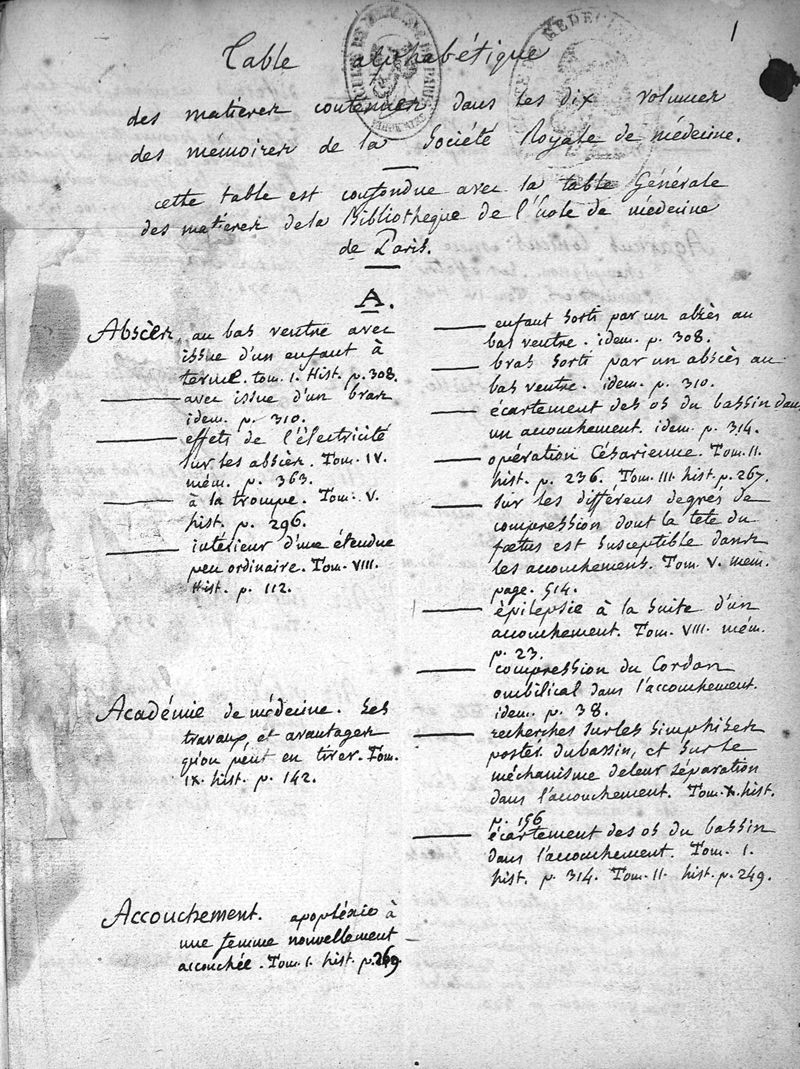 1
Table alphabétique
des matieres contenues dans les dix volumes
des mémoires de la Société Royale de médecine.
cette table est confondue avec la table Générale
des matieres de la Bibliotheque de l'école de médecine
de Paris.
A.
Abscès, au bas ventre avec
issue d'un enfant à
terme. tom. 1. Hist. p. 308.
avec issue d'un bras
idem. p. 310.
effets de l'électricité
sur les abscès. Tom. IV.
mém. p. 363.
à la trompe. Tom. V.
hist. p. 296.
interieur d'une étendue
peu ordinaire. Tom. VIII.
Hist. p. 112.
Académie de médecine. Ses
travaux, et avantages
qu'on peut en tirer. Tom.
IX. hist. p. 142.
Accouchement. apopléxie à
une femme nouvellement
accouchée. Tom. 1. hist. p.
enfant sorti par un abcès au
bas ventre. idem. p. 308.
bras sorti par un abscès au
bas ventre. idem. p. 310.
écartement des os du bassin dans
un accouchement. idem. p. 314.
opération Césarienne. Tom. II.
hist. p. 236. Tom. III. hist. p. 267.
sur les différens degrés de
compression dont la tete du
fœtus est susceptible dans
les accouchemens. Tom. V. mem.
page. 514.
épilepsie à la suite d'un
accouchement. Tom. VIII. mém.
p. 23.
compression du Cordon
ombilical dans l'accouchement.
idem. p. 38.
recherches sur les simphises
postes. du bassin, et sur le
méchanisme de leur séparation
dans l'accouchement. Tom. X. hist.
p. 156
écartement des os du bassin
dans l'accouchement. Tom. 1.
hist. p. 314. Tom. II. hist. p. 249.